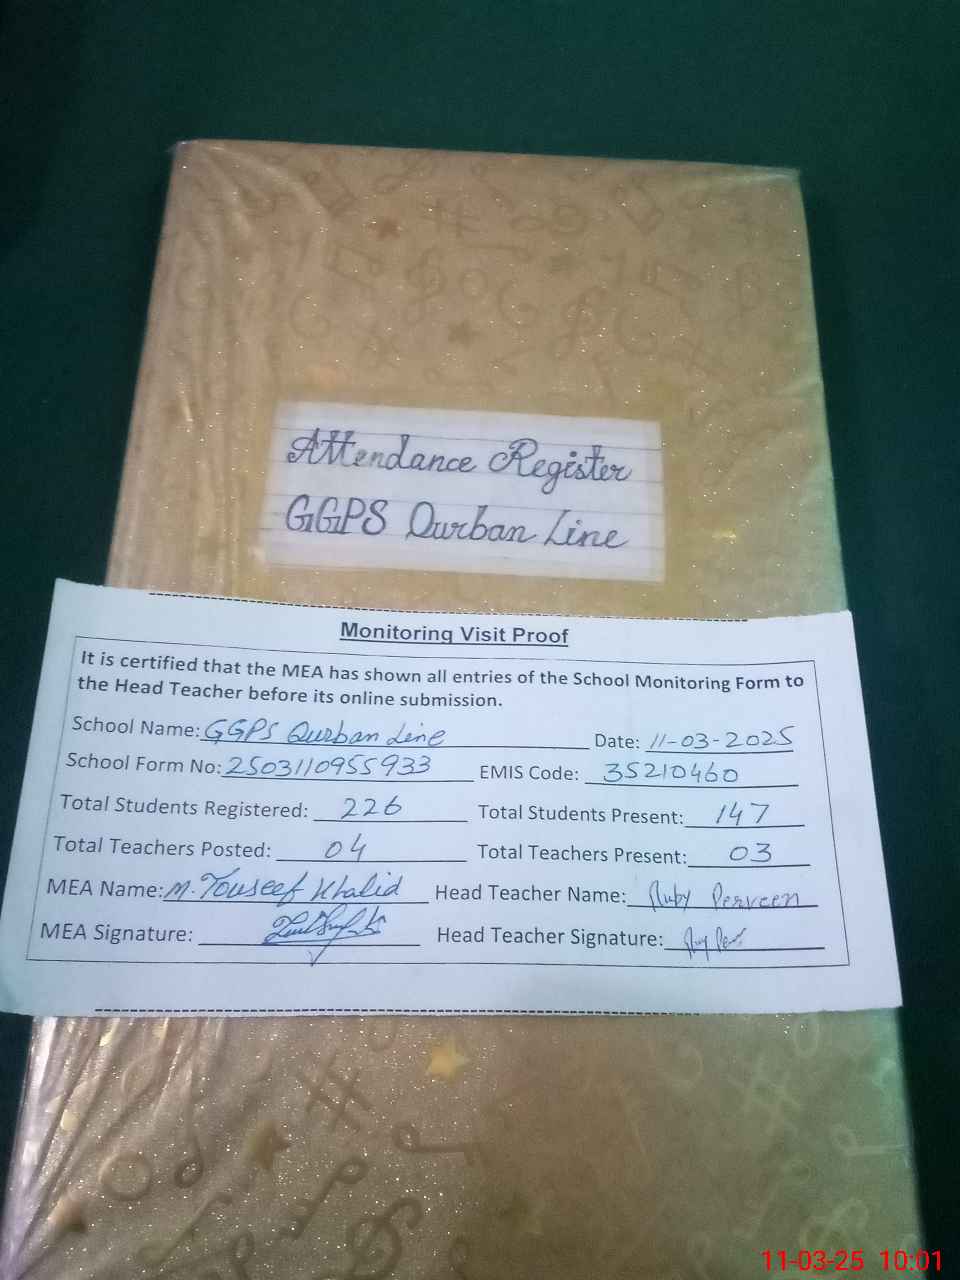 Attendance Register
GGPS Qurban Line
Monitoring Visit Proof
It is certified that the MEA has shown all entries of the School Monitoring Form to
the Head Teacher before its online submission.
School Name: GGPS Qurban Line Date: 11-03-2025
School Form No: 2503110955933 EMIS Code: 35210460
Total Students Registered: 226 Total Students Present: 147
Total Teachers Posted: 04 Total Teachers Present: 03
MEA Name: M. Youseef Khalid Head Teacher Name: Ruby Perveen
MEA Signature: Head Teacher Signature:
11-03-25 10:01